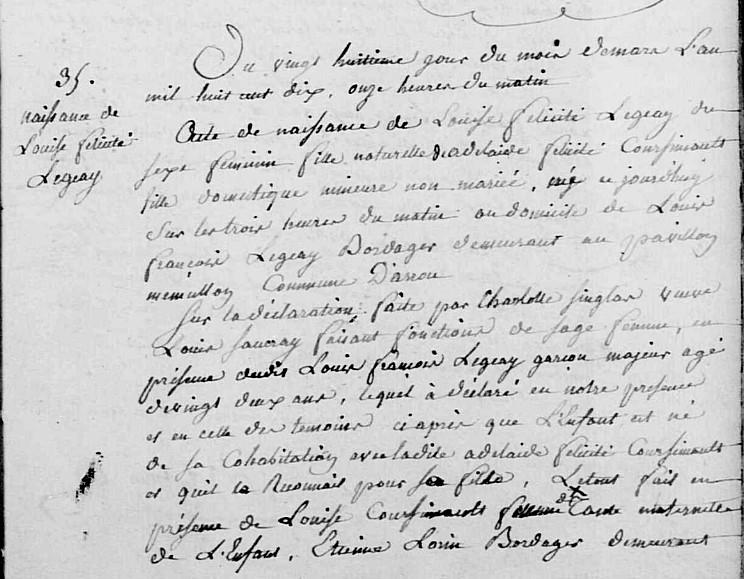 35.
naissance de
Louise félicité
Legeay
Du vingt huitieme jour du mois de mars L'an
mil huit cent dix, onze heures du matin
Acte de naissance de Louise félicité Legeay du
sexe feminin fille naturelle de adelaide félicité Coursimault
fille domestique mineure non mariée, née ce jourdhuy
sur les trois heures du matin au domicile de Louis
françois Legeay Bordager demeurant au pavillon
memillon Commune D'arrou
Sur la déclaration faite par Charlotte singlas veuve
Louis sauvay faisant fonctions de sage femme, en
présence dudit Louis françois Legeay garçon majeur agé
de vingt deux ans, lequel à déclaré en notre presence
et en celle des temoins ci après que L'Enfant est né
de sa Cohabitation avec ladite adelaide félicité Coursimault
et qu'il la Reconnait pour sa fille, Le tout fait en
présence de Louise Coursimault femme Tante maternelle
de L'Enfant, Etienne Lorin Bordager demeurant